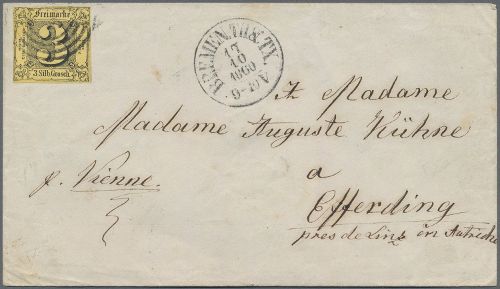 Freimarke
3
3 Silb. Grosch.
BREMEN. TH.&.TX.
17
10
1860
9-10 V
A Madame
Madame Auguste Kühne
a
Efferding
pres de Linz en Autriche
p. Vienne.